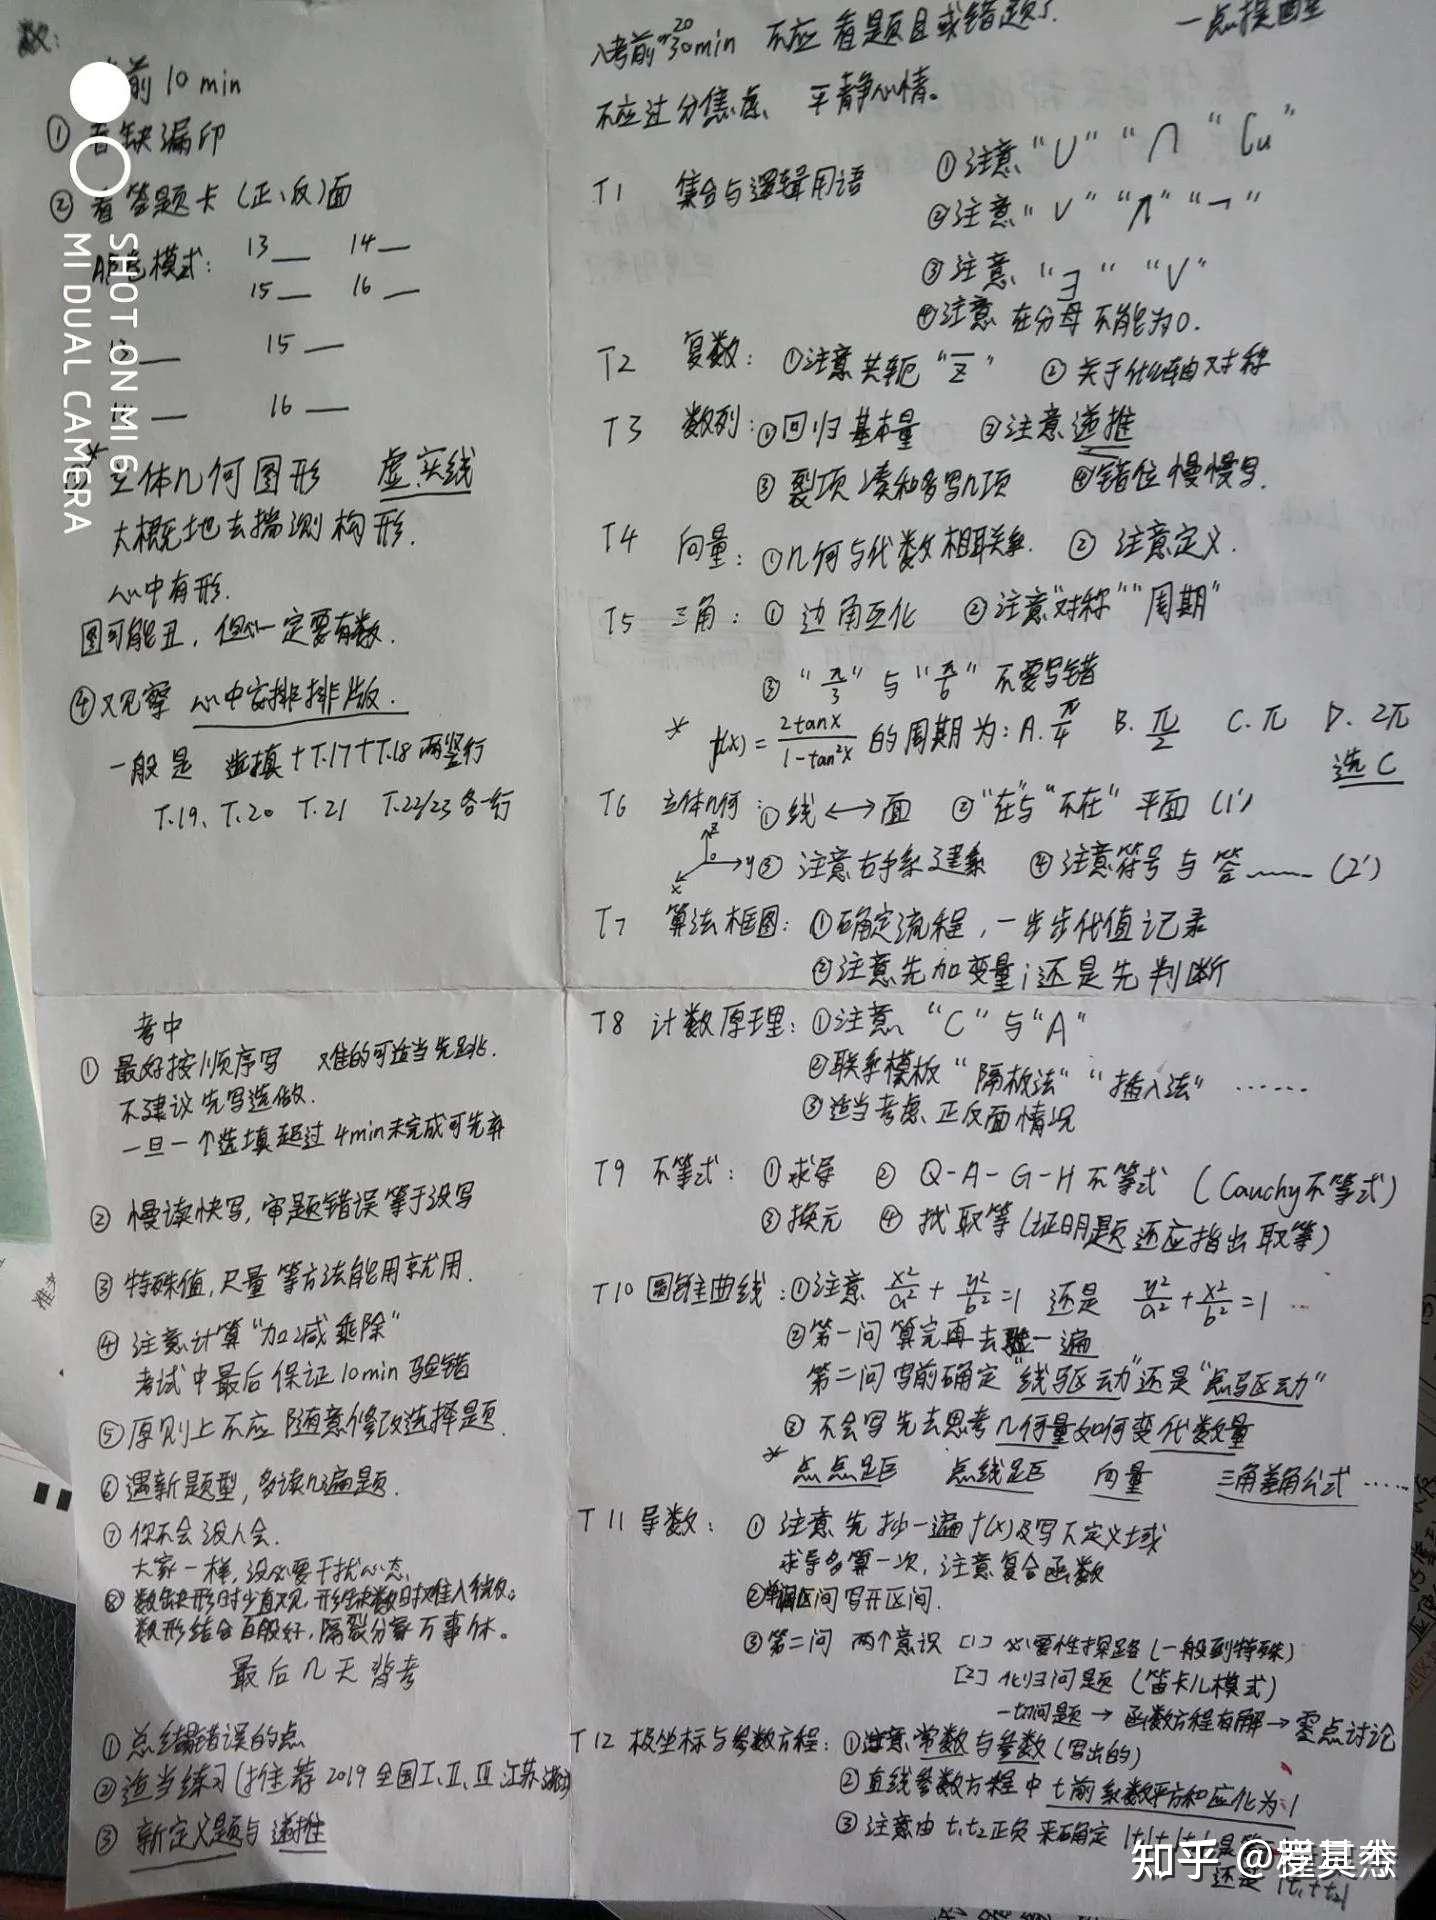 数:
前10min
① 看缺漏印
② 看答题卡(正、反)面
模式: 13__ 14__
15__ 16__
15__
16__
立体几何图形 虚实线
大概地去揣测构形.
心中有形.
图可能丑, 但心一定要有数.
④ 观察 心中安排排版.
一般是 选填+T.17+T.18 两竖行
T.19、T.20 T.21 T.22/23 各一行
考中
① 最好按顺序写 难的可适当先跳.
不建议先写选做.
一旦一个选填超过4min未完成可先弃
② 慢读快写, 审题错误等于没写
③ 特殊值, 尺量等方法能用就用.
④ 注意计算“加减乘除”
考试中最后保证10min验错
⑤ 原则上不应随意修改选择题.
⑥ 遇新题型, 多读几遍题.
⑦ 你不会没人会.
大家一样, 没必要干扰心态.
⑧ 数缺形时少直观, 形缺数时难入微。
数形结合百般好, 隔裂分家万事休。
最后几天背考
① 总结错误的点
② 适当练习(推荐2019全国I、II、III 江苏
③ 新定义题与递推
入考前20~30min 不应看题目或错题了. 一点提醒
不应过分焦虑、平静心情。
T1 集合与逻辑用语 ① 注意“∪”“∩”“∁u”
② 注意“∨”“∧”“¬”
③ 注意“∃”“∀”
④ 注意 在分母不能为0.
T2 复数: ① 注意共轭“z̅” ② 关于什么轴对称
T3 数列: ① 回归基本量 ② 注意递推
③ 裂项 凑和多写几项 ④ 错位慢慢写.
T4 向量: ① 几何与代数相联系. ② 注意定义.
T5 三角: ① 边角互化 ② 注意“对称”“周期”
③ “π/3”与“π/6”不要写错
* f(x)=2tanx/(1-tan²x) 的周期为: A.π/4 B.π/2 C.π D.2π
选C
T6 立体几何: ① 线⟷面 ② “在”与“不在”平面(1')
z o y x ③ 注意右手系建系 ④ 注意符号与答……(2')
T7 算法框图: ① 确定流程, 一步步代值记录
② 注意先加变量i还是先判断
T8 计数原理: ① 注意“C”与“A”
② 联系模板“隔板法”“插入法”……
③ 适当考虑正反面情况
T9 不等式: ① 求导 ② Q-A-G-H不等式 (Cauchy不等式)
③ 换元 ④ 找取等(证明题还应指出取等)
T10 圆锥曲线: ① 注意 x²/a²+y²/b²=1 还是 y²/a²+x²/b²=1 …
② 第一问算完再去验一遍
第二问写前确定“线驱动”还是“点驱动”
③ 不会写先去思考几何量如何变代数量
* 点点距 点线距 向量 三角差角公式……
T11 导数: ① 注意先抄一遍f(x)及写下定义域
求导多算一次, 注意复合函数
② 单调区间写开区间.
③ 第二问 两个意识 [1] 必要性探路(一般到特殊)
[2] 化归问题(笛卡儿模式)
一切问题→函数方程有解→零点讨论
T12 极坐标与参数方程: ① 注意常数与参数(写出的)
② 直线参数方程中t前系数平方和应化为1
③ 注意由t₁t₂正负来确定
还是|t₁+t₂|
SHOT ON MI 6
MI DUAL CAMERA
知乎 @覆其焘